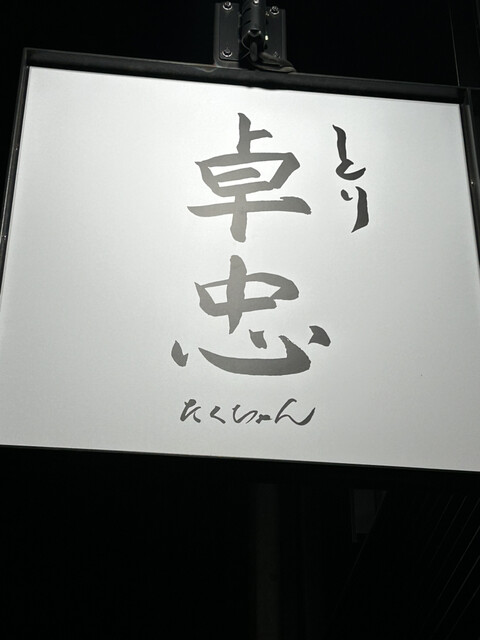 とり
卓忠
たくちゃん